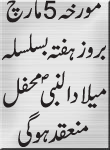 مورخہ 5 مارچ
بروز ہفتہ بسلسلہ
میلاد النبیؐ محفل
منعقد ہوگی